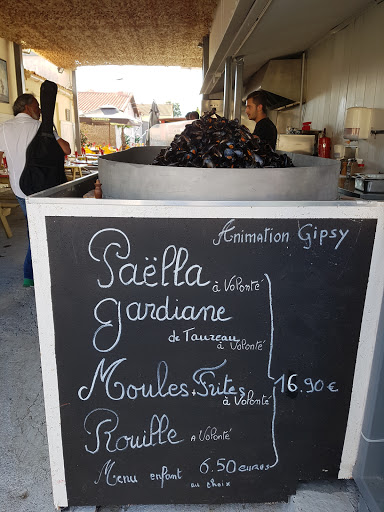 Animation Gipsy
Paëlla à Volonté
gardiane
de Taureau
à Volonté
Moules + Frites
à Volonté
16.90 €
Rouille à Volonté
Menu enfant 6.50 euros
au choix